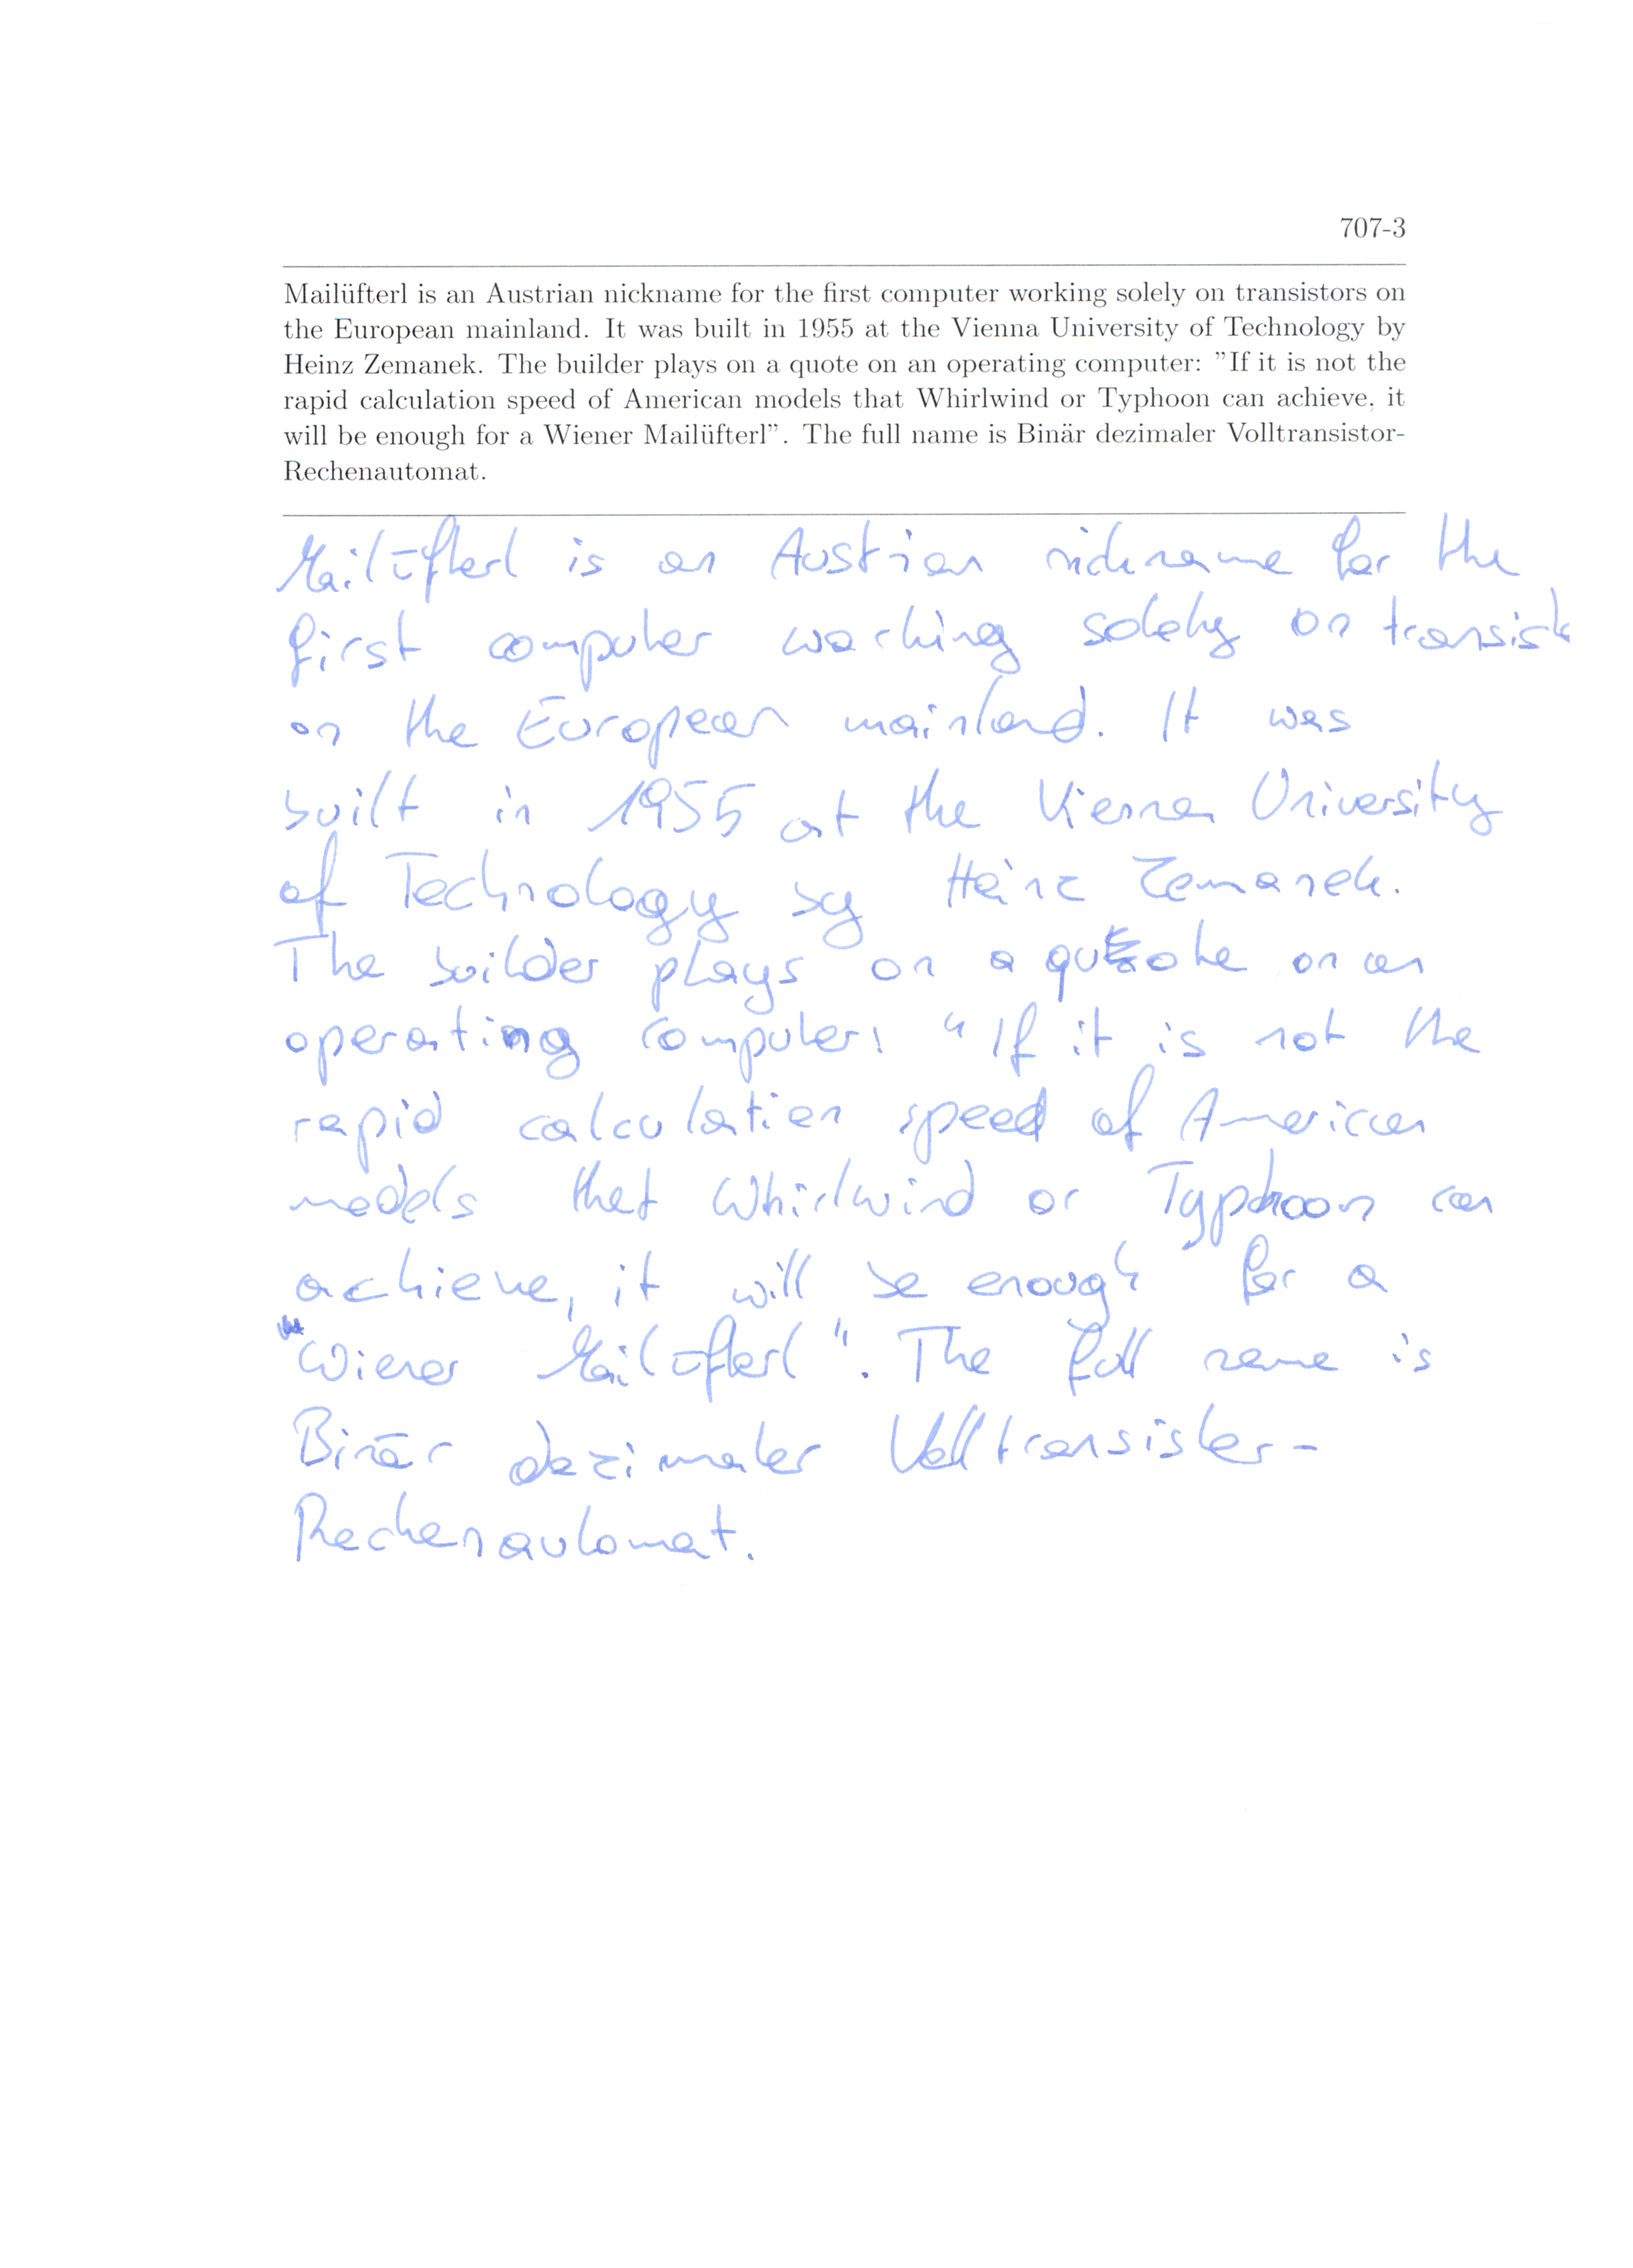 707-3
Mailüfterl is an Austrian nickname for the first computer working solely on transistors on
the European mainland. It was built in 1955 at the Vienna University of Technology by
Heinz Zemanek. The builder plays on a quote on an operating computer: "If it is not the
rapid calculation speed of American models that Whirlwind or Typhoon can achieve, it
will be enough for a Wiener Mailüfterl". The full name is Binär dezimaler Volltransistor-
Rechenautomat.
Mailüfterl is an Austrian nickname for the
first computer working solely on transist
on the European mainland. It was
built in 1955 at the Vienna University
of Technology by Heinz Zemanek.
The builder plays on a quote on an
operating computer: "If it is not the
rapid calculation speed of American
models that Whirlwind or Typhoon can
achieve, it will be enough for a
Wiener Mailüfterl". The full name is
Binär dezimaler Volltransistor-
Rechenautomat.